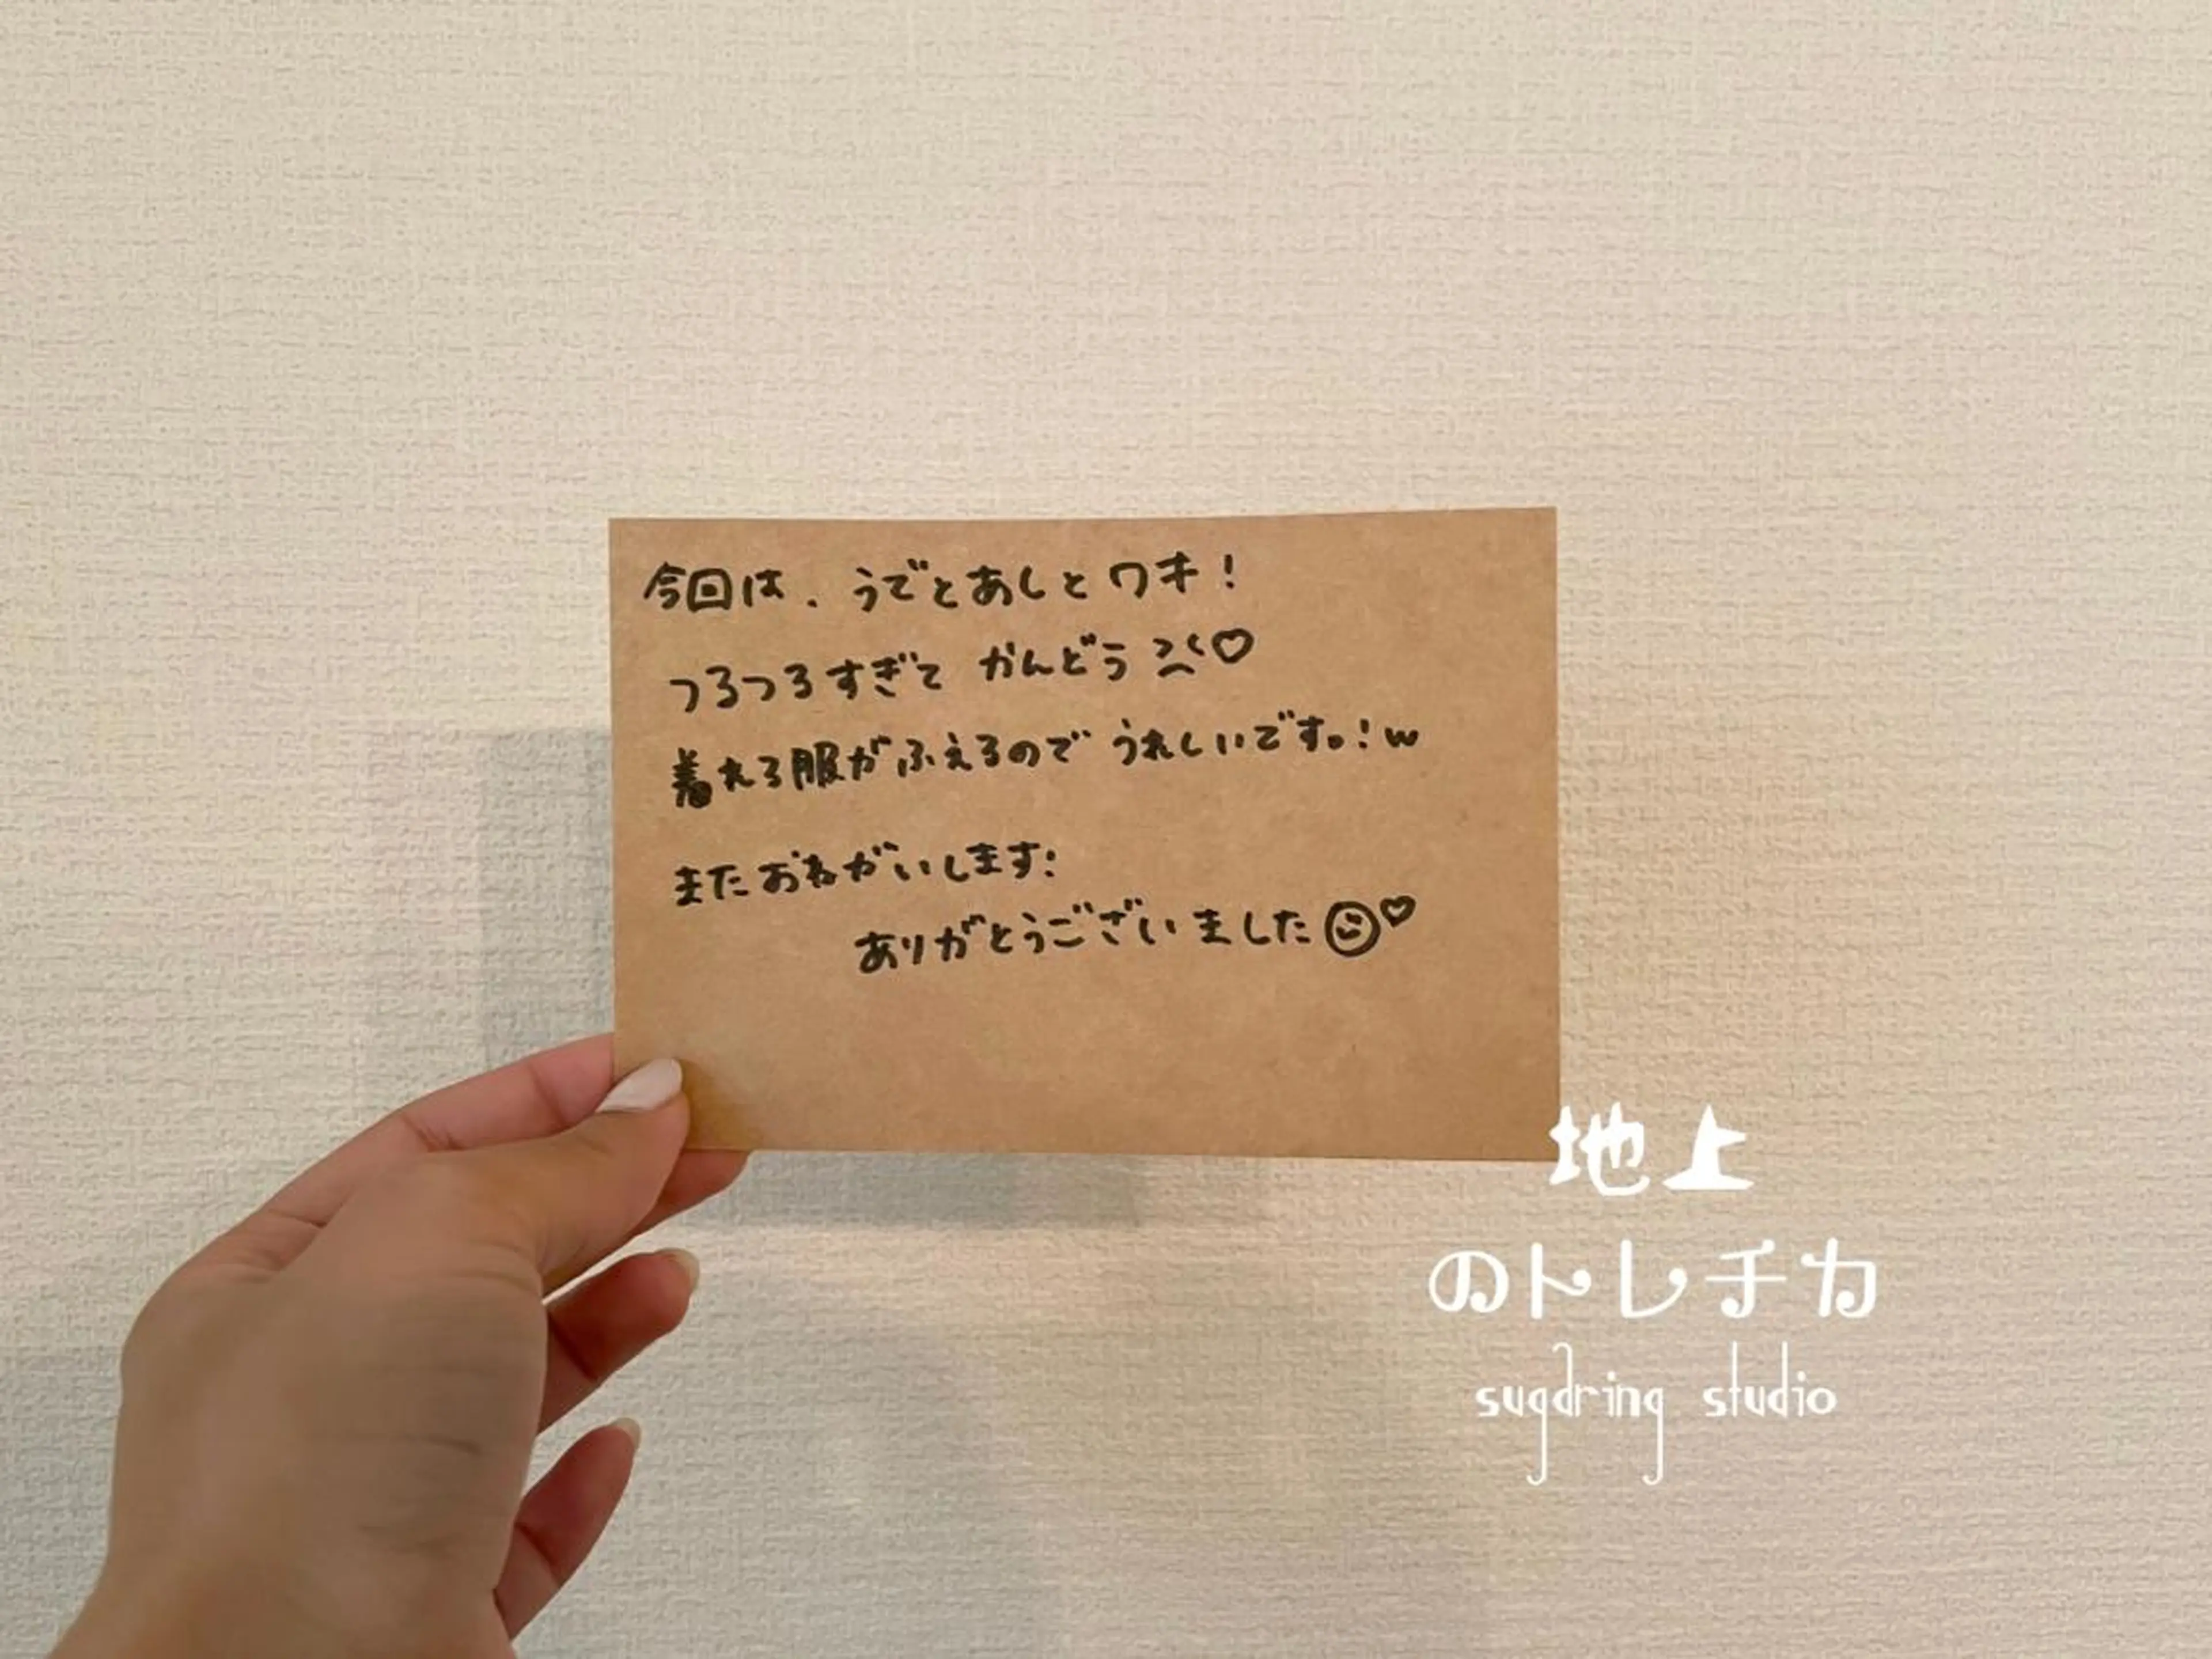 今回は、うでとあしとワキ!
つるつるすぎて かんどう ♡
着れる服がふえるので うれしいです。!w
またおねがいします!
ありがとうございました ☺♡
地上
のトレチカ
sugdring studio